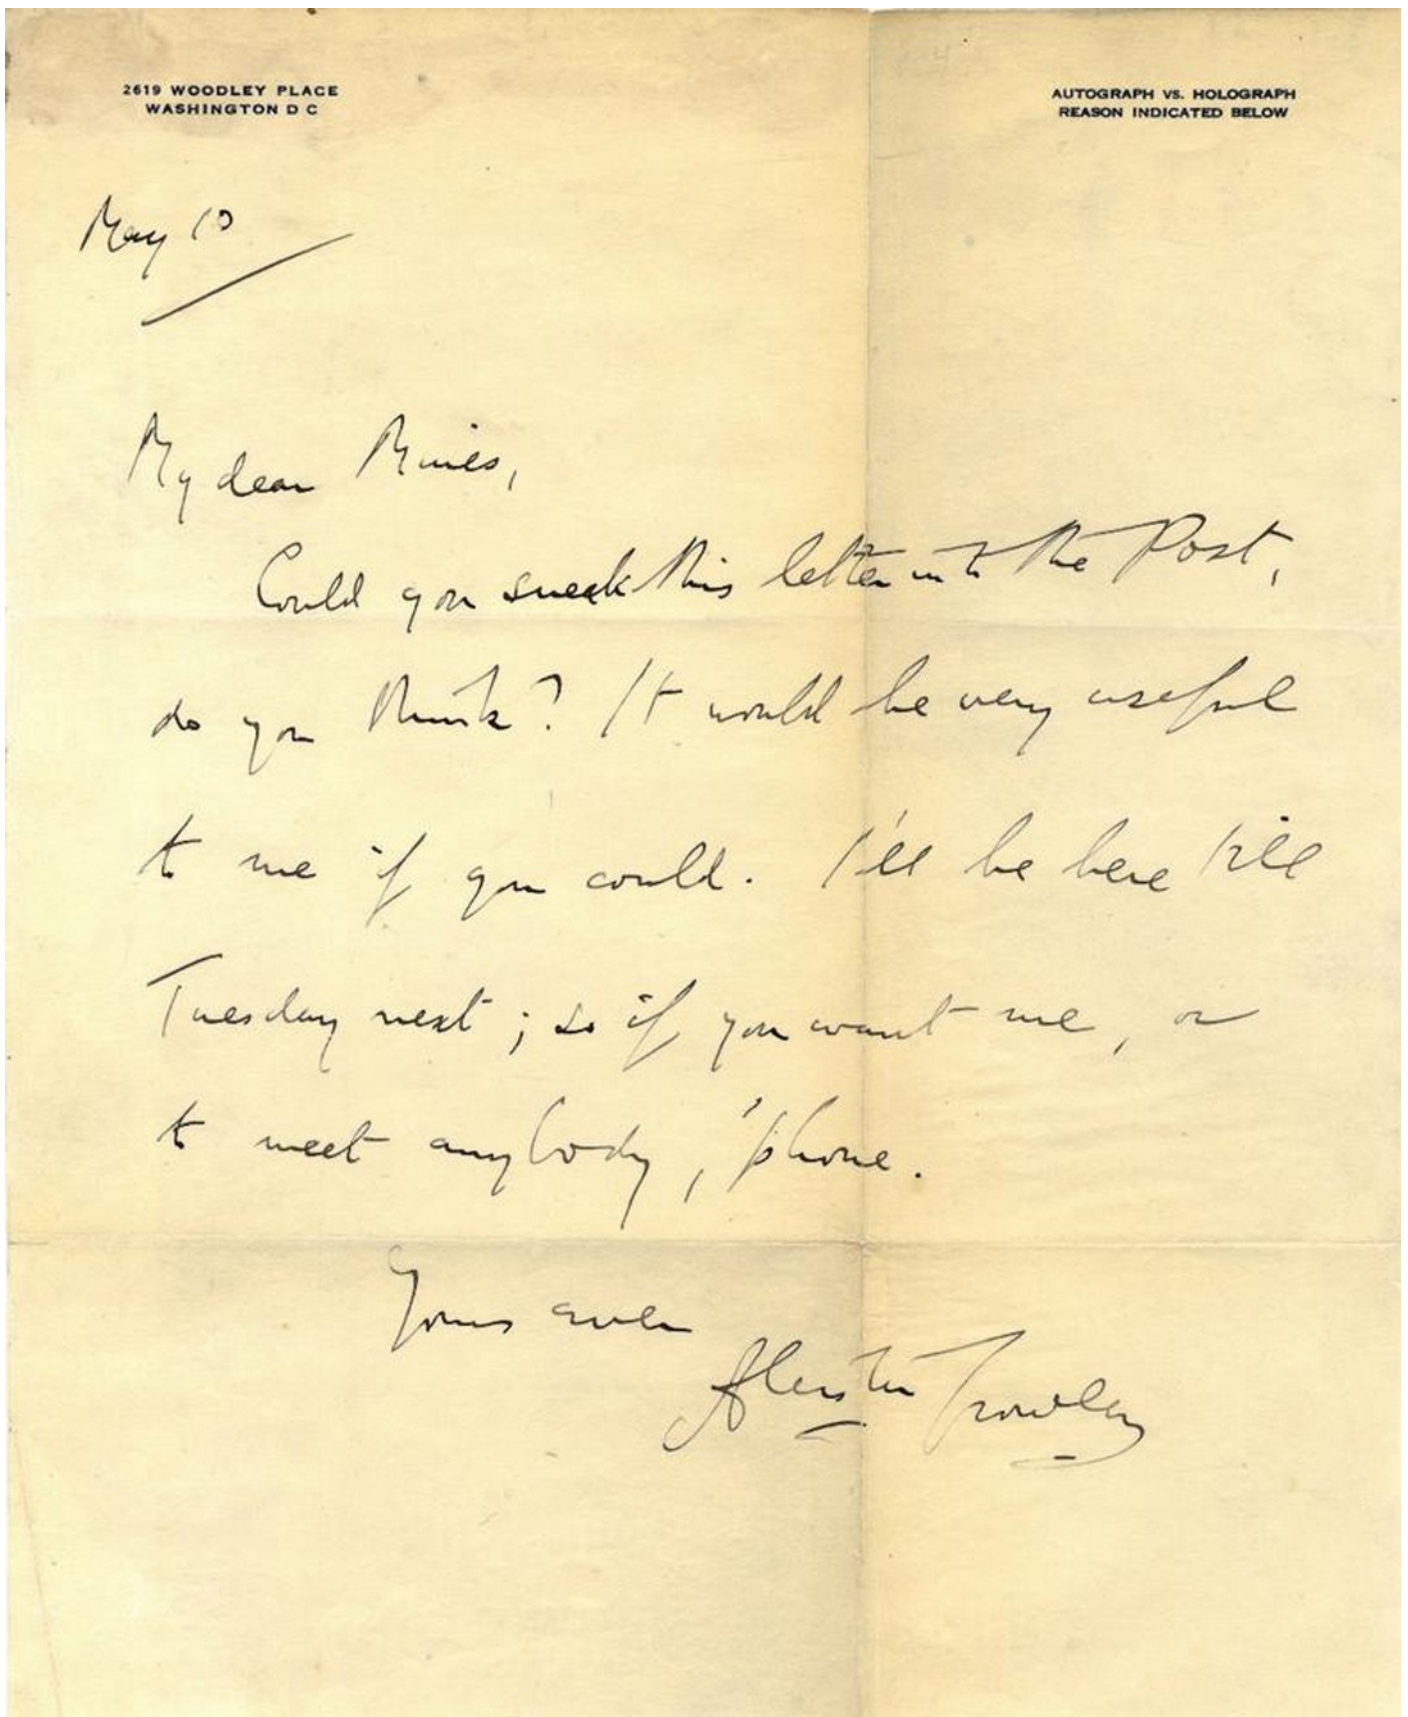 2619 WOODLEY PLACE
WASHINGTON D C
AUTOGRAPH VS. HOLOGRAPH
REASON INDICATED BELOW
May 10
My dear Mines,
Could you sneak this letter into the Post,
do you think? It would be very useful
to me if you could. I'll be here till
Tuesday next; so if you want me, or
to meet anybody, 'phone.
Yours ever
Aleister Crowley